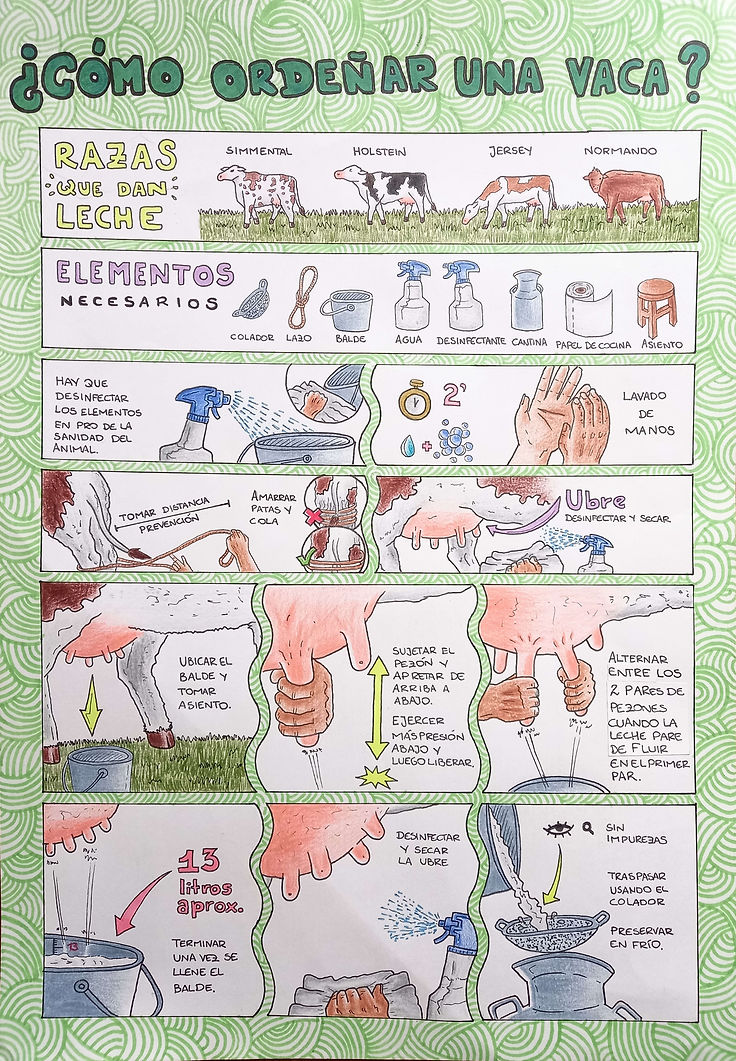 ¿CÓMO ORDEÑAR UNA VACA?
RAZAS
QUE DAN
LECHE
SIMMENTAL
HOLSTEIN
JERSEY
NORMANDO
ELEMENTOS
NECESARIOS
COLADOR
LAZO
BALDE
AGUA
DESINFECTANTE
CANTINA
PAPEL DE COCINA
ASIENTO
HAY QUE
DESINFECTAR
LOS ELEMENTOS
EN PRO DE LA
SANIDAD DEL
ANIMAL.
2'
+
LAVADO
DE
MANOS
TOMAR DISTANCIA
PREVENCIÓN
AMARRAR
PATAS Y
COLA
Ubre
DESINFECTAR Y SECAR
UBICAR EL
BALDE Y
TOMAR
ASIENTO.
SUJETAR EL
PEZÓN Y
APRETAR DE
ARRIBA A
ABAJO.
EJERCER
MÁS PRESIÓN
ABAJO Y
LUEGO LIBERAR.
ALTERNAR
ENTRE LOS
2 PARES DE
PEZONES
CUANDO LA
LECHE PARE
DE FLUIR
EN EL PRIMER
PAR.
13
litros
aprox.
TERMINAR
UNA VEZ SE
LLENE EL
BALDE.
DESINFECTAR
Y SECAR
LA UBRE
SIN
IMPUREZAS
TRASPASAR
USANDO EL
COLADOR
PRESERVAR
EN FRÍO.